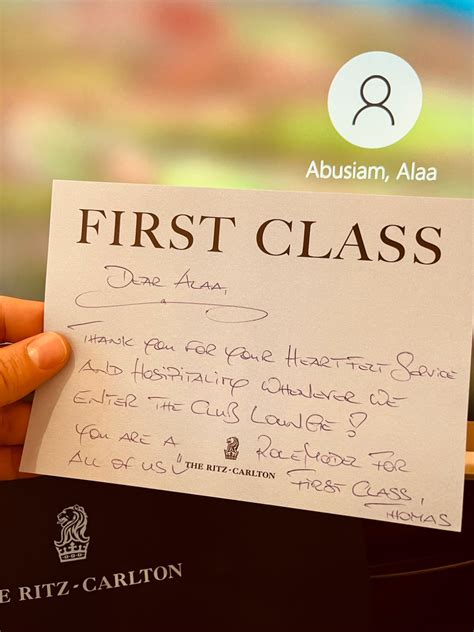 Abusiam, Alaa
FIRST CLASS
DEAR ALAA,
THANK YOU FOR YOUR HEARTFELT SERVICE
AND HOSPITALITY WHENEVER WE
ENTER THE CLUB LOUNGE!
YOU ARE A ROLEMODEL FOR
ALL OF US
FIRST CLASS,
THOMAS
THE RITZ-CARLTON
E RITZ-CARLTON